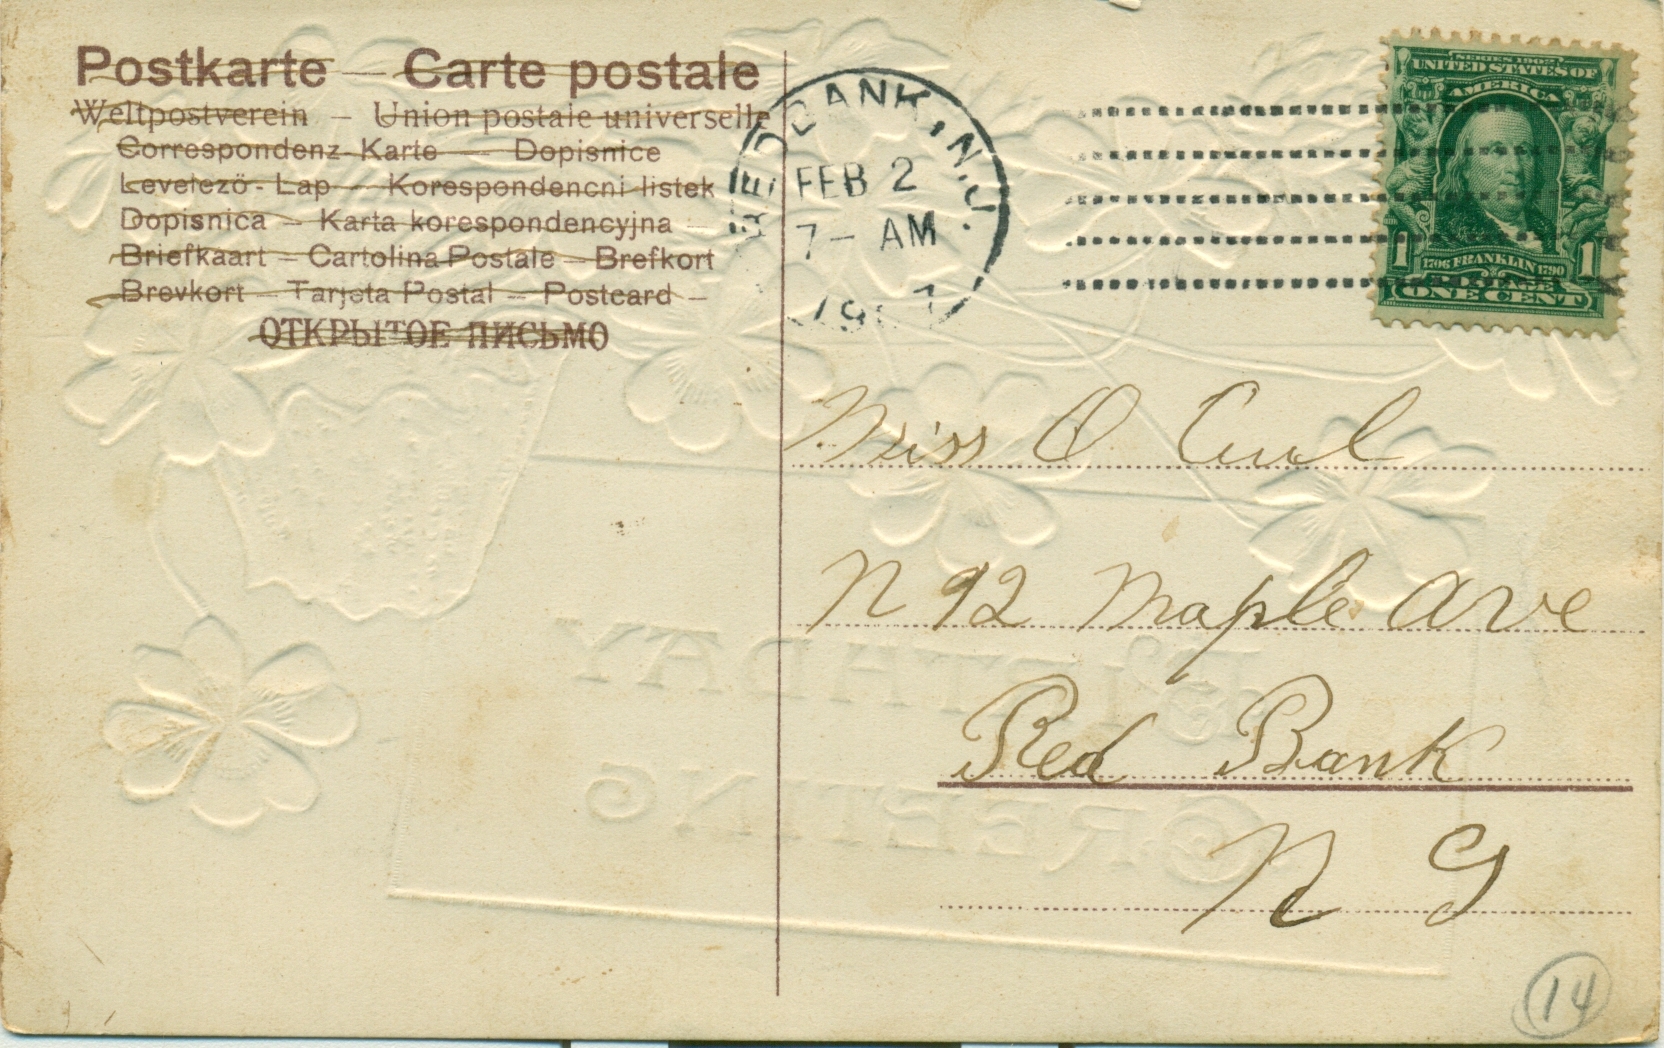 Postkarte — Carte postale
Weltpostverein — Union postale universelle
Correspondenz-Karte — Dopisnice
Levelező-Lap — Korespondencni listek
Dopisnica — Karta korespondencyjna —
Briefkaart — Cartolina Postale — Brefkort
Brevkort — Tarjeta Postal — Postcard —
ОТКРЫТОЕ ПИСЬМО
RED BANK, N.J.
FEB 2
7 — AM
1907
SERIES 1902
UNITED STATES OF
AMERICA
1706 FRANKLIN 1790
1 POSTAGE 1
ONE CENT
Miss O Curl
N 92 Maple Ave
Red Bank
N J
BIRTHDAY
GREETING
14